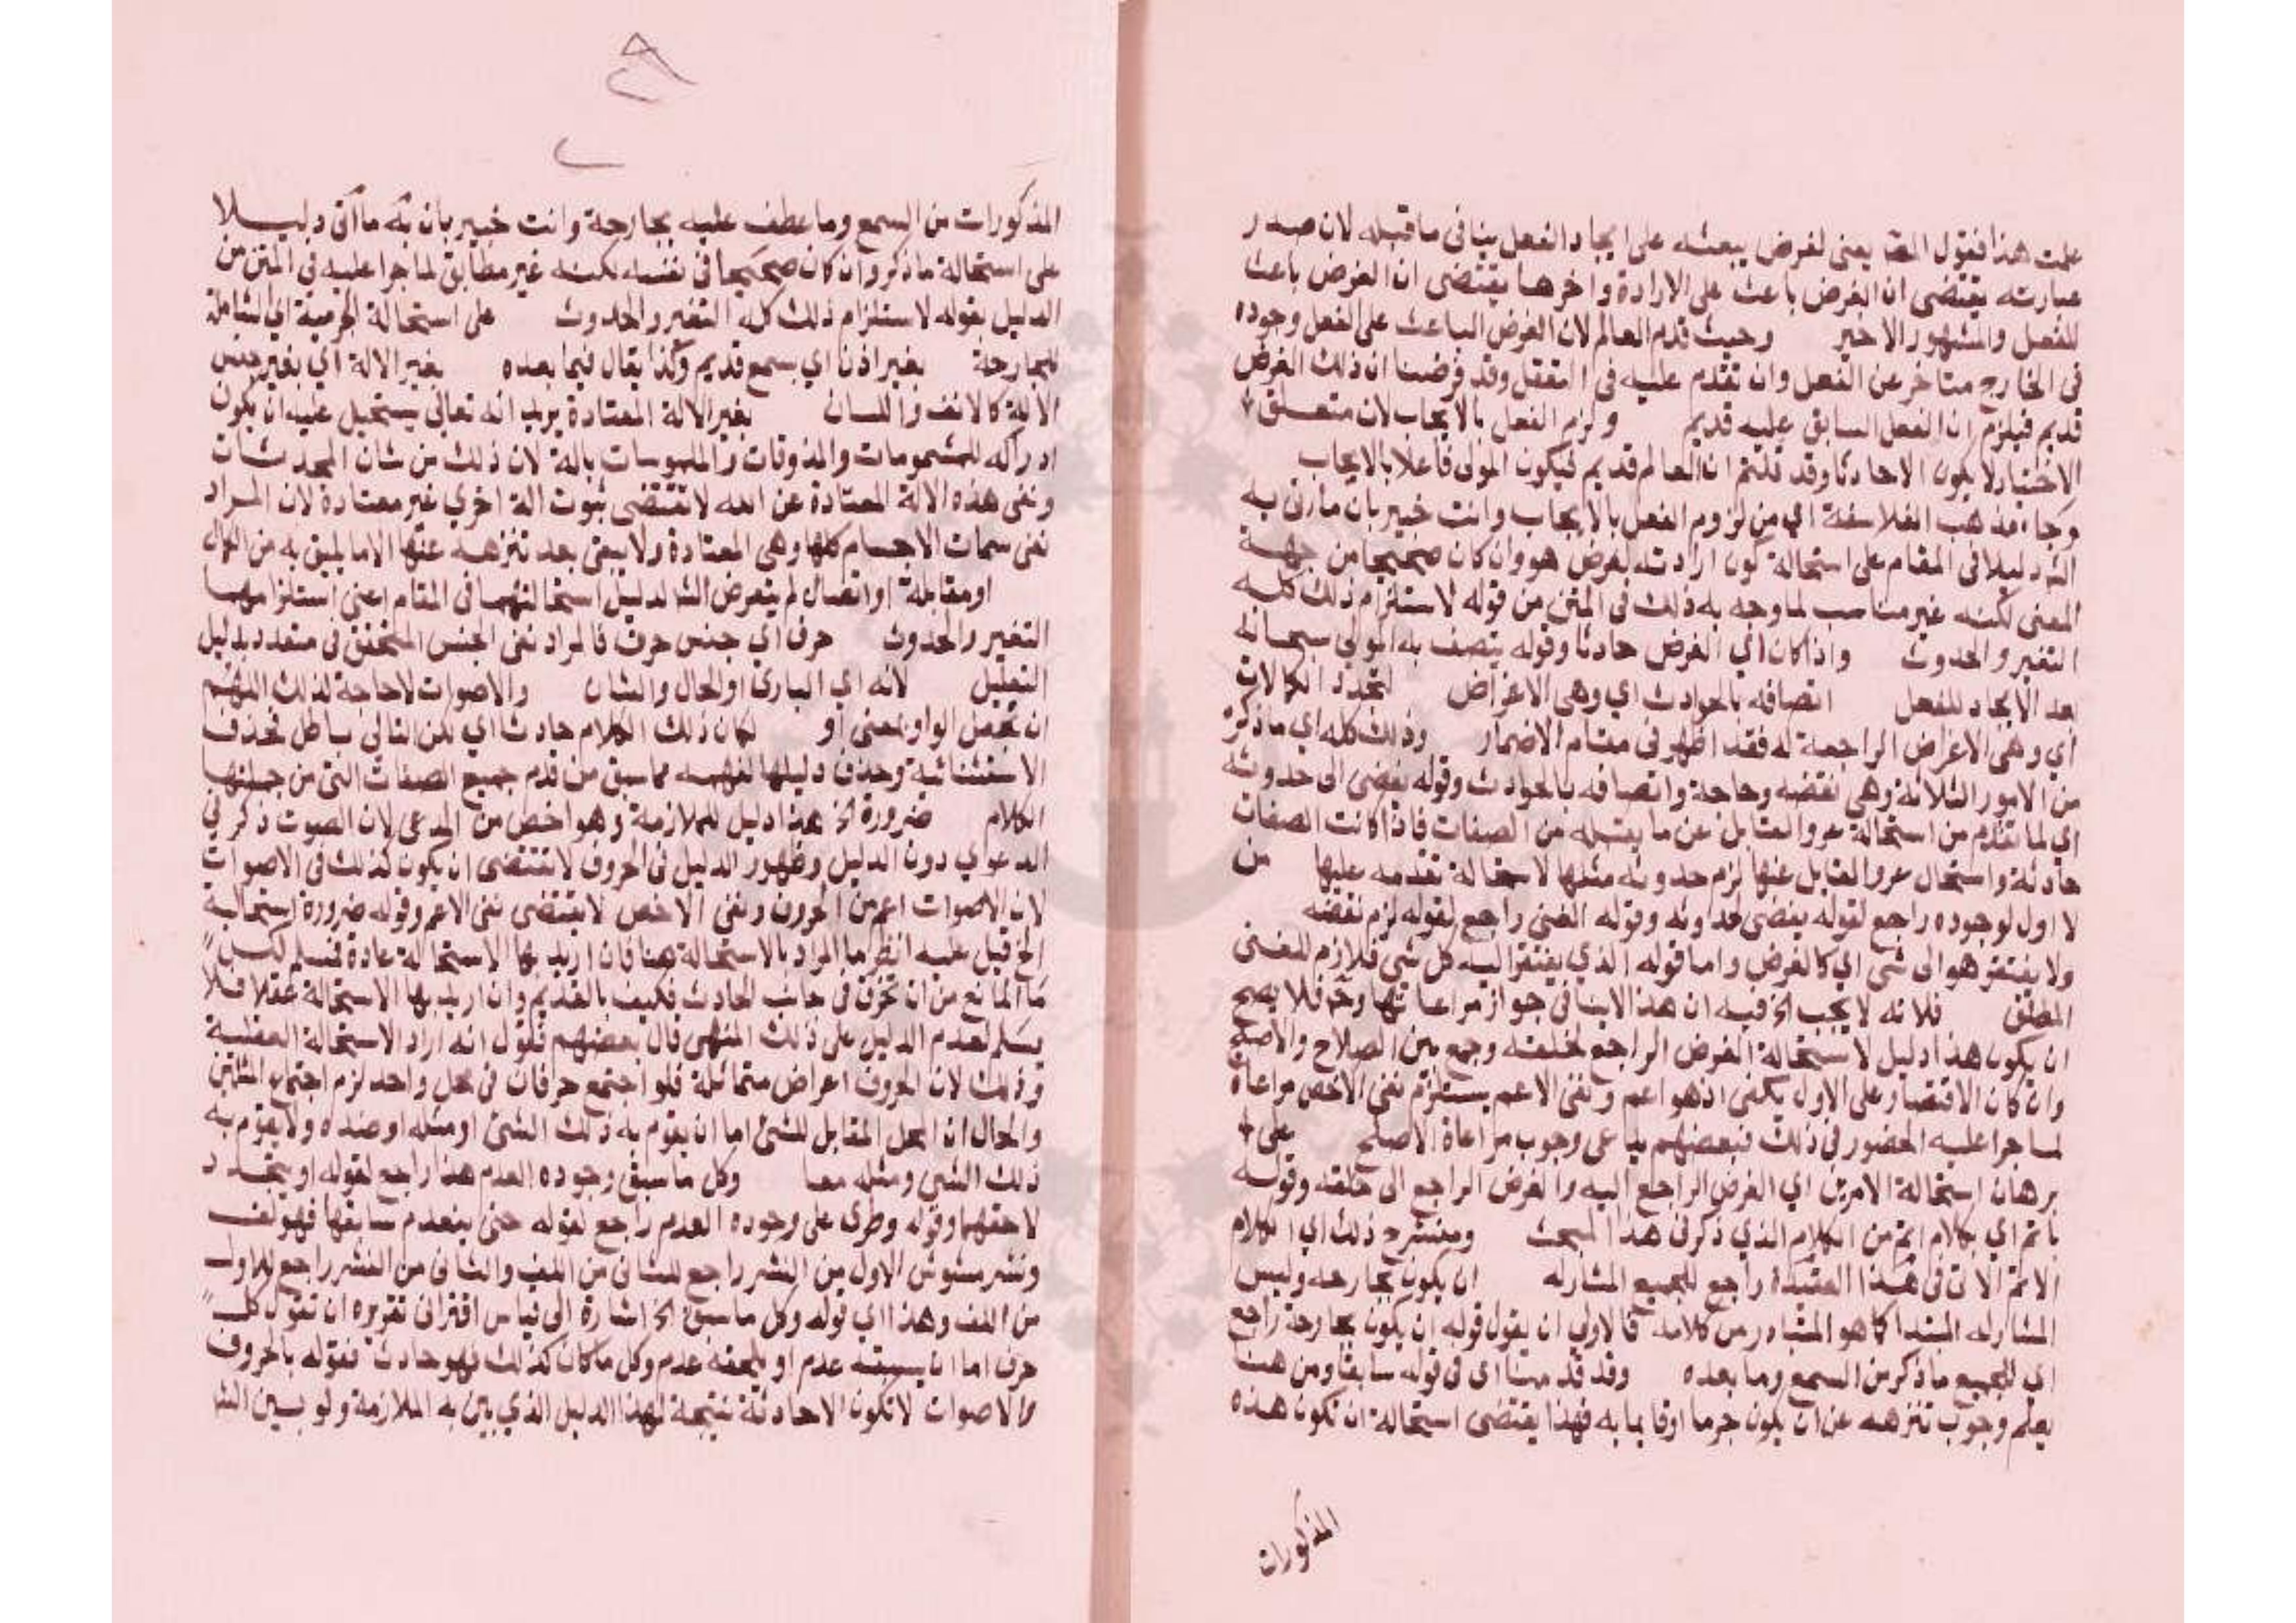 علمت هذا فقول المصنف يعني لغرض يبعثه على ايجاد الفعل ينافي ما قبله لان صدر
عبارته يقتضي ان الغرض باعث على الارادة واخرها يقتضي ان الغرض باعث
للفعل والمشهور الاخير وحيث قدم العالم لان الغرض الباعث على الفعل وجوده
في الخارج متاخر عن الفعل وان تقدم عليه في التعقل وقد فرضنا ان ذلك الغرض
قديم فيلزم ان الفعل السابق عليه قديم ولزم الفعل بالايجاب لان متعلق
الاختيار لا يكون الا حادثا وقد قلتم ان العالم قديم فيكون المولى فاعلا بالايجاب
وجاء مذهب الفلاسفة اي من لزوم الفعل بالايجاب وانت خبير بان ما اتى به
الشـ دليلا في المقام على استحالة كون ارادته لغرض هو وان كان صحيحا من جهة
المعنى لكنه غير مناسب لما وجه به ذلك في المتن من قوله لاستلزام ذلك كله
التغير والحدوث واذا كان اي الغرض حادثا وقوله يتصف به المولى سبحانه
بعد الايجاد للفعل اتصافه بالحوادث اي وهي الاعراض لتجدد الكمالات
اي وهي الاغراض الراجعة له فقد اظهر في مقام الاضمار وذلك كله اي ما ذكره
من الامور الثلاثة وهي نقصه وحاجة واتصافه بالحوادث وقوله يفضي الى حدوثه
اي لما تقدم من استحالة عرو القابل عن ما يقبله من الصفات فاذا كانت الصفات
حادثة واستحال عرو القابل عنها لزم حدوثه مثلها لاستحالة تقدمه عليها من
لا اول لوجوده راجع لقوله يفضي لحدوثه وقوله الغني راجع لقوله لزم نقصه
ولا يفتقر هو الى شي اي كالغرض واما قوله الذي يفتقر اليه كل شي فلازم للغني
المطلق فلانه لا يجب الخ فيه ان هذا لا ينافي جواز مراعاتها وح فلا يصح
ان يكون هذا دليل لاستحالة الغرض الراجع لخلقه وجمع بين الصلاح والاصلح
وان كان الاقتصار على الاول يكفي اذ هو اعم ونفي الاعم يستلزم نفي الاخص مراعاة
لما جرا عليه الحضور في ذلك فبعضهم على وجوب مراعاة الاصلح على
برهان استحالة الامرين اي الغرض الراجع اليه والغرض الراجع الى خلقه وقوله
باتم اي بكلام اتم من الكلام الذي ذكر في هذا المبحث ومنشرح ذلك اي الكلام
الاتم الات في هذا العقيدة راجع للجميع المشار له ان يكون بجارحه وليس
المشار له المبتدا كما هو المتبادر من كلامه فالاولى ان يقول قوله ان يكون بجارحة راجع
اي للجميع ما ذكر من السمع وما بعده وقد قدمنا اي في قوله سابقا ومن هنا
يعلم وجوب تنزهه عن ان يكون جرما اوقايما به فهذا يقتضي استحالة ان تكون هذه
المذكورات
المذكورات من السمع وما عطف عليه بجارحة وانت خبير بان ما اتى دليلا
على استحالة ما ذكر وان كان صحيحا في نفسه لكنه غير مطابق لما جرا عليه في المتن من
الدليل بقوله لاستلزام ذلك كله التغير والحدوث على استحالة الجرمية اي الشاملة
للجارحة بغير اذن اي بسمع قديم وكذا يقال فيما بعده بغير الالة اي بغير جنس
الالة كالانف واللسان بغير الالة المعتادة يريد انه تعالى يستحيل عليه ان يكون
ادراكه للمشمومات والمذوقات والملموسات بالة لان ذلك من شان المحدثات
ونفي هذه الالة المعتادة عن الله لا تقتضي ثبوت الة اخري غير معتادة لان المراد
نفي سمات الاجسام كلها وهي المعتادة ولا يبقى بعد تنزهه عنها الا ما يليق به من الكمال
او مقابلة او اتصال لم يتعرض الشا لدليل استحالتهما في المقام اعني استلزامهما
التغير والحدوث حرف اي جنس حرف فالمراد نفي الجنس المتحقق في متعدد بدليل
التعليل لانه اي الباري او الحال والشان والاصوات لا حاجة لذلك اللهم
ان تجعل الواو بمعنى او لكان ذلك الكلام حادثا اي لكن التالي باطل فحذف
الاستثنائية وحذف دليلها لفهمه مما سبق من قدم جميع الصفات التي من جملتها
الكلام ضرورة الخ هذا دليل للملازمة وهو اخص من المدعى لان الصوت ذكر في
الدعوي دون الدليل وظهور الدليل في الحروف لا تقتضي ان يكون كذلك في الاصوات
لان الاصوات اعم من الحروف ونفي الاخص لا يقتضي نفي الاعم وقوله ضرورة استحالة
الخ قيل عليه انظر ما المراد بالاستحالة هنا فان اريد بها الاستحالة عادة فمسلم لكن
ما المانع من ان تخرق في جانب الحادث فكيف بالقديم وان اريد بها الاستحالة عقلا فلا
يسلم لعدم الدليل على ذلك انتهى قال بعضهم نقول انه اراد الاستحالة العقلية
وذلك لان الحروف اعراض متماثلة فلو اجتمع حرفان في محل واحد لزم اجتماع المثلين
والحال ان المحل المقابل للشي اما ان يقوم به ذلك الشي او مثله او ضده ولا يقوم به
ذلك الشي ومثله معا وكل ما سبق وجوده العدم هذا راجع لقوله او يتجدد
لاحقهما وقوله وطرى على وجوده العدم راجع لقوله حتى ينعدم سابقها فهو لف
ونشر مشوش الاول من النشر راجع للثاني من اللف والثاني من النشر راجع للاول
من اللف وهذا اي قوله وكل ما سبق الخ اشارة الى قياس اقتراني تقريره ان تقول كل
حرف اما ان يسبقه عدم او يلحقه عدم وكل ما كان كذلك فهو حادث فقوله بالحروف
والاصوات لا تكون الا حادثة نتيجة لهذا الدليل الذي بين به الملازمة ولو بين الشا